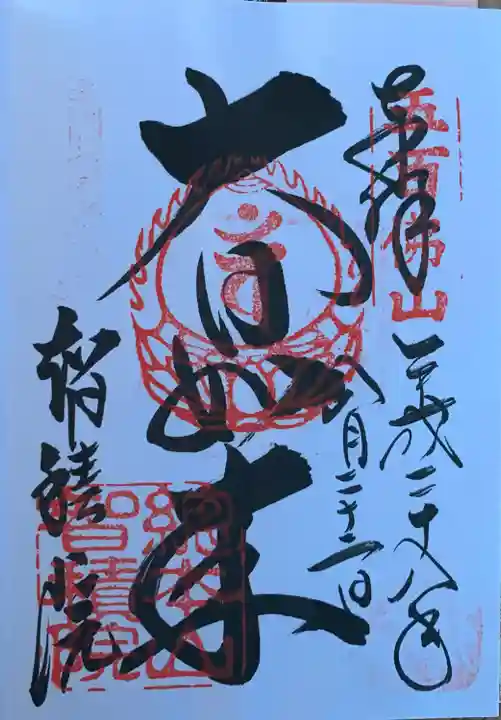 奉拝
五百佛山
平成二十八年
月二十二日
大日如来
智積院
總本山
智積院